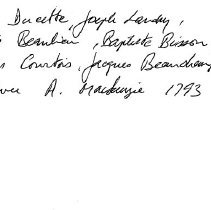 Ducette, Joseph Landry,
Beaulieu, Baptiste Bisson
Courtois, Jacques Beauchamp
A. Mackenzie 1793